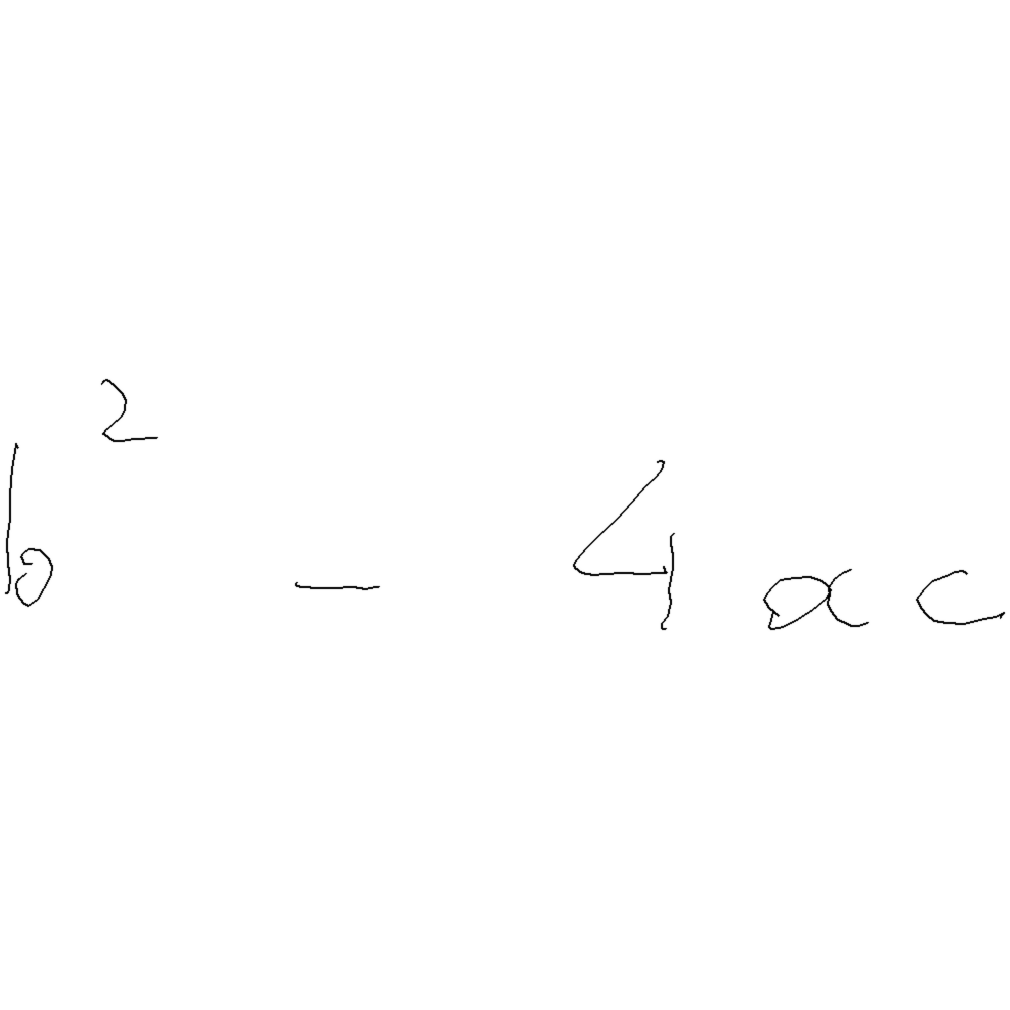 b² - 4ac